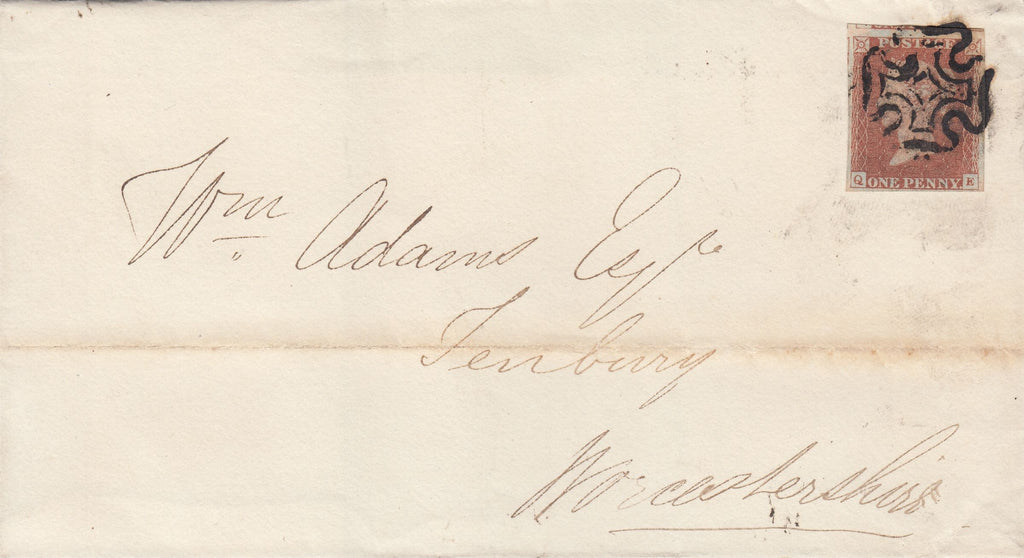 POSTAGE
Q ONE PENNY E
Wm Adams Esqre
Tenbury
Worcestershire